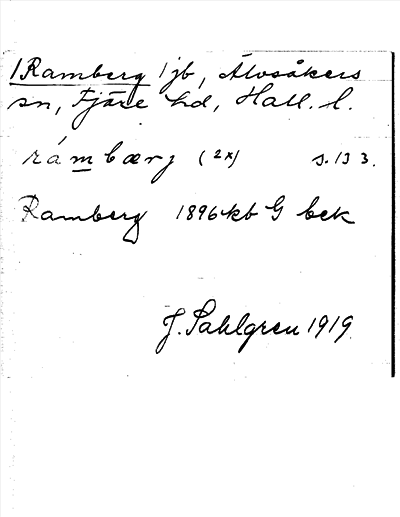 1 Ramberg 1 jb, Älvsåkers
sn, Fjäre hd, Hall. l.
rámbærj (2x) s. 133.
Ramberg 1896 kb G bek
J. Sahlgren 1919